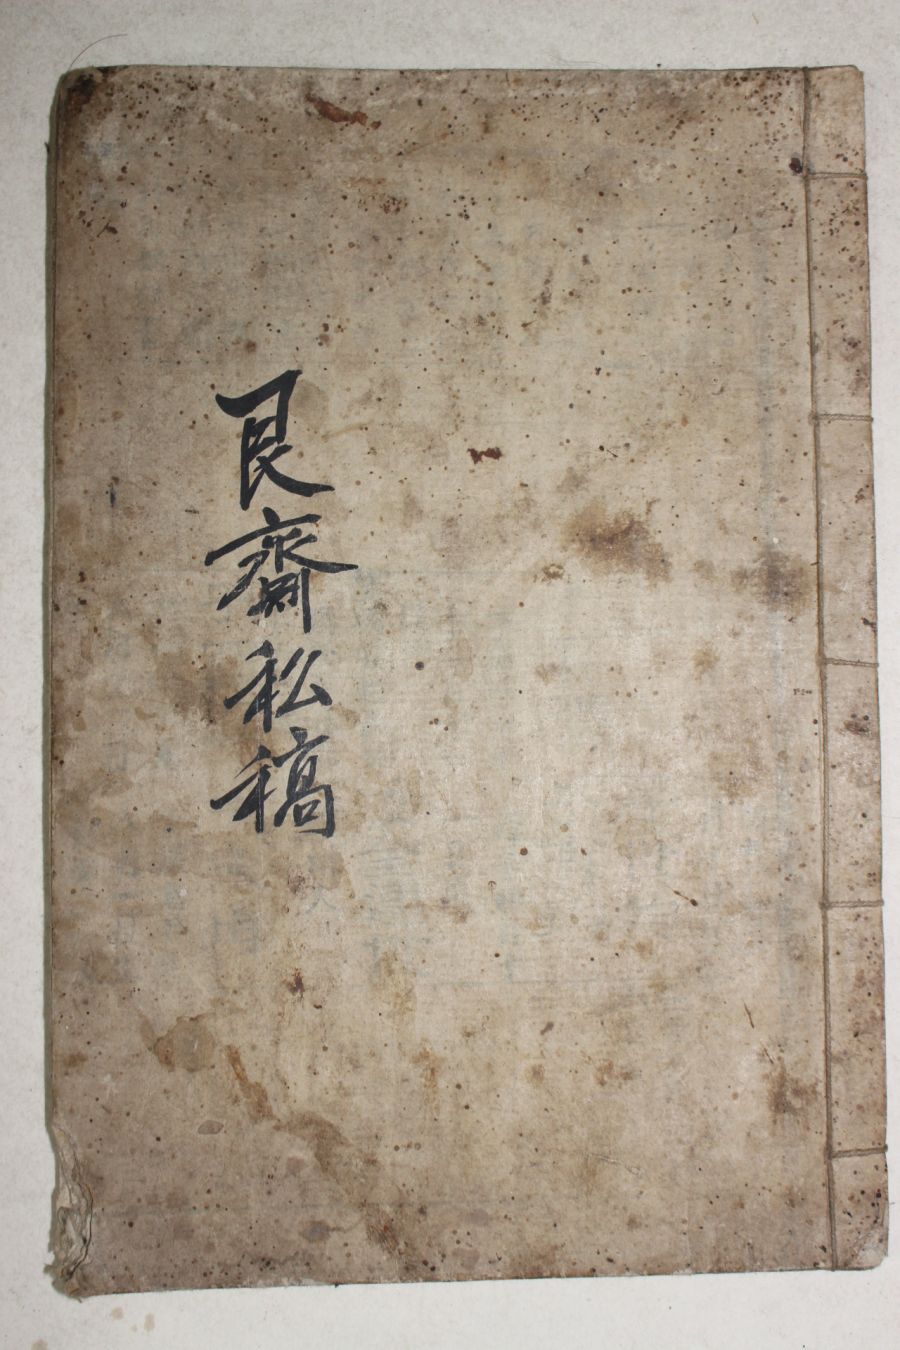 艮齋私稿